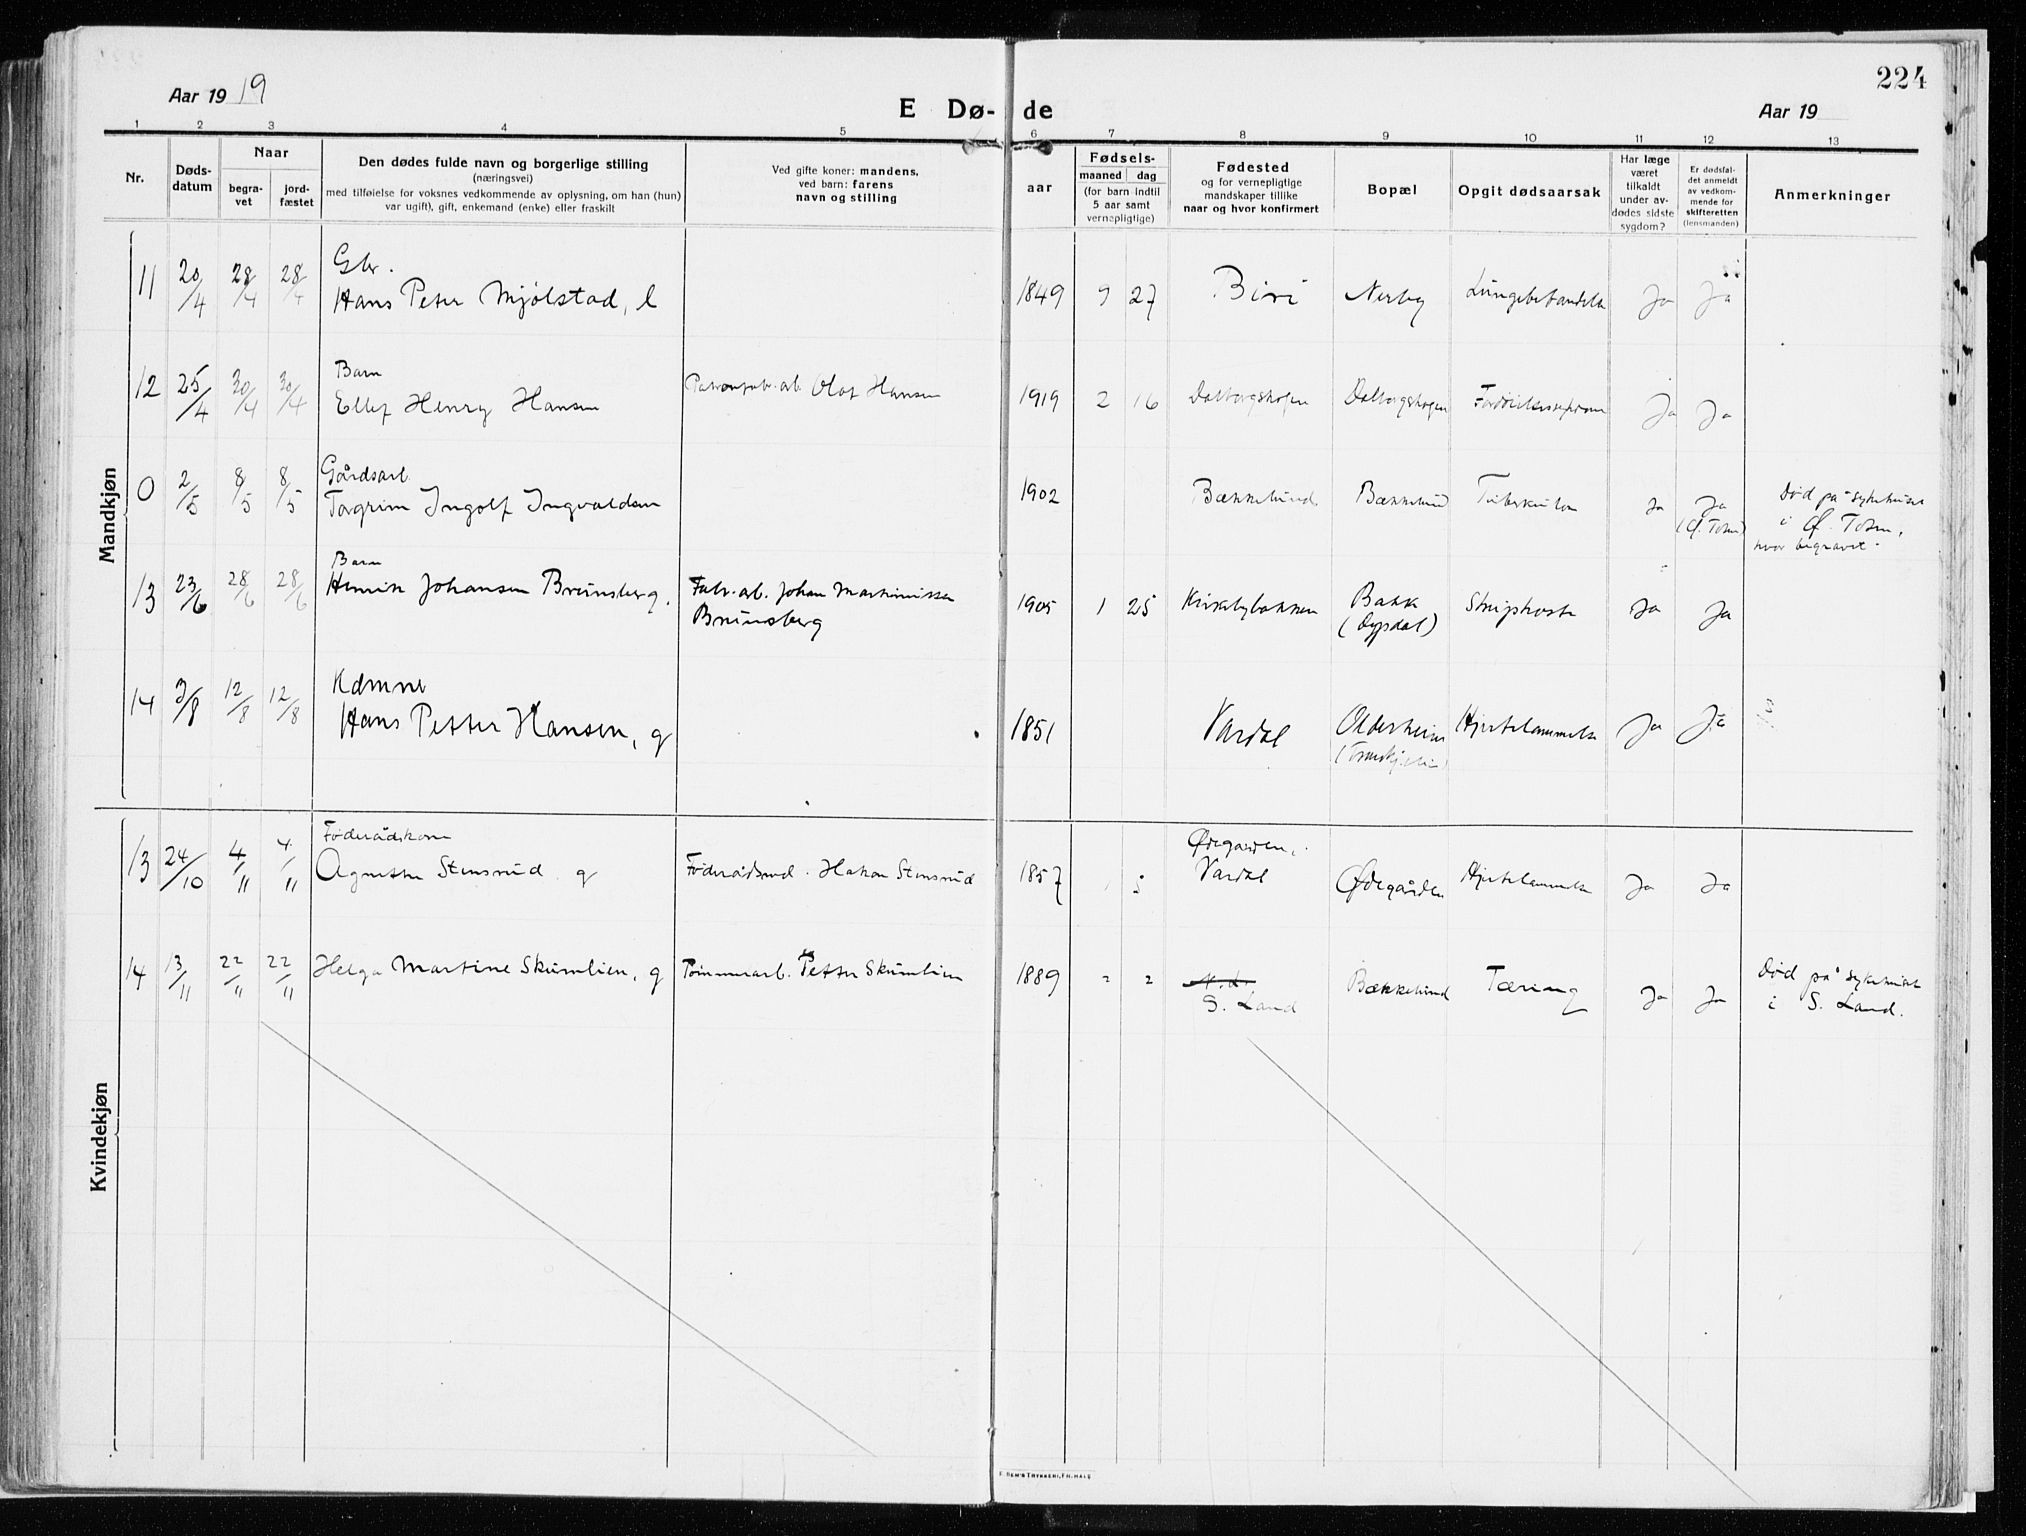 224
Aar 1919
E Dø-
de
Aar 19
1 2 3 4 5 6 7 8 9 10 11 12 13
Nr.
Døds-
datum
Naar
begra-
vet
jord-
fæstet
Den dødes fulde navn og borgerlige stilling
(næringsvei)
med tilføielse for voksnes vedkommende av oplysning, om han (hun)
var ugift), gift, enkemand (enke) eller fraskilt
Ved gifte koner: mandens,
ved barn: farens
navn og stilling
aar
Fødsels-
maaned dag
(for barn indtil
5 aar samt
vernepligtige)
Fødested
og for vernepligtige
mandskaper tillike
naar og hvor konfirmert
Bopæl
Opgit dødsaarsak
Har læge
været
tilkaldt
under av-
dødes sidste
sygdom?
Er dødsfal-
det anmeldt
av vedkom-
mende for
skifteretten
(lensmanden)
Anmerkninger
Mandkjøn
Gbr.
11 20/4 28/4 28/4 Hans Peter Mjølstad, 1849 9 27 Biri Nerby Ja Ja
Barn
12 25/4 30/4 30/4 Ellef Henry Hansen Olof Hansen 1919 2 16 Dalborgskogen Dalborgskogen Ja Ja
Gårdsarb.
0 2/5 8/5 8/5 Torgrim Ingolf Ingvaldsen 1902 Bækkelund Bækkelund Tuberkulose Ja Ja
(Ø. Toten)
Død på sykehuset
i Ø. Toten,
hvor begravet.
Barn
13 23/6 28/6 28/6 Henrik Johansen Brunsberg. Fabr.arb. Johan Martiniussen
Brunsberg
1905 1 25 Kirkebybakken Bakke
(Dypdal)
Ja Ja
14 3/8 12/8 12/8 Hans Petter Hansen, g 1851 Vardal Hjertelammelse Ja Ja
Kvindekjøn
Føderådskone
13 24/10 4/11 4/11 Agnethe Stensrud g Føderådsmd. Hakon Stensrud 1857 1 5 Ødegården,
Vardal
Ødegården Hjertelammelse Ja Ja
14 13/11 22/11 22/11 Helga Martine Skumlien, g Tømmerarb. Petter Skumlien 1889 2 2 S. Land Bækkelund Tæring Ja Ja
Død på sykehuset
i S. Land.